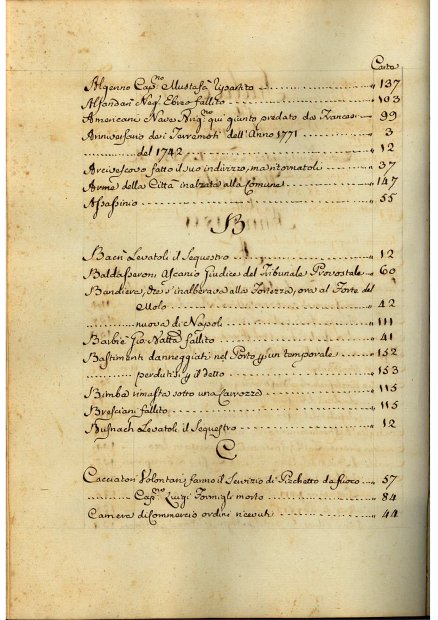 Carta
Algerino Cap.no Mustafà ripartito 137
Alfandari Neg. Ebreo fallito 103
Americani Nave qui giunto predato da Francesi 99
Anniversario dei Terremoti dell'Anno 1771 3
del 1742 12
Arcivescovo fatto il suo indirizzo, ma ritornatoli 37
Arme della Città inalzata alla Comune 147
Assassinio 55
B
Bacri Levatoli il Sequestro 12
Baldasseroni Ascanio Giudice del Tribunale Provostale 60
Bandiera, che s'inalberava alla Fortezza, ora al Forte del
Molo 42
nuova di Napoli 111
Barbieri Gio Batta fallito 41
Bastimenti danneggiati nel Porto p un temporale 152
perdutisi p il detto 153
Bimba rimasta sotto una Carrozza 115
Bresciani fallito 115
Busnach Levatoli il Sequestro 12
C
Cacciatori Volontari fanno il Servizio di Picchetto da fuoco 57
Cap.no Luigi Formigli morto 84
Camera di Commercio ordini ricevuti 44